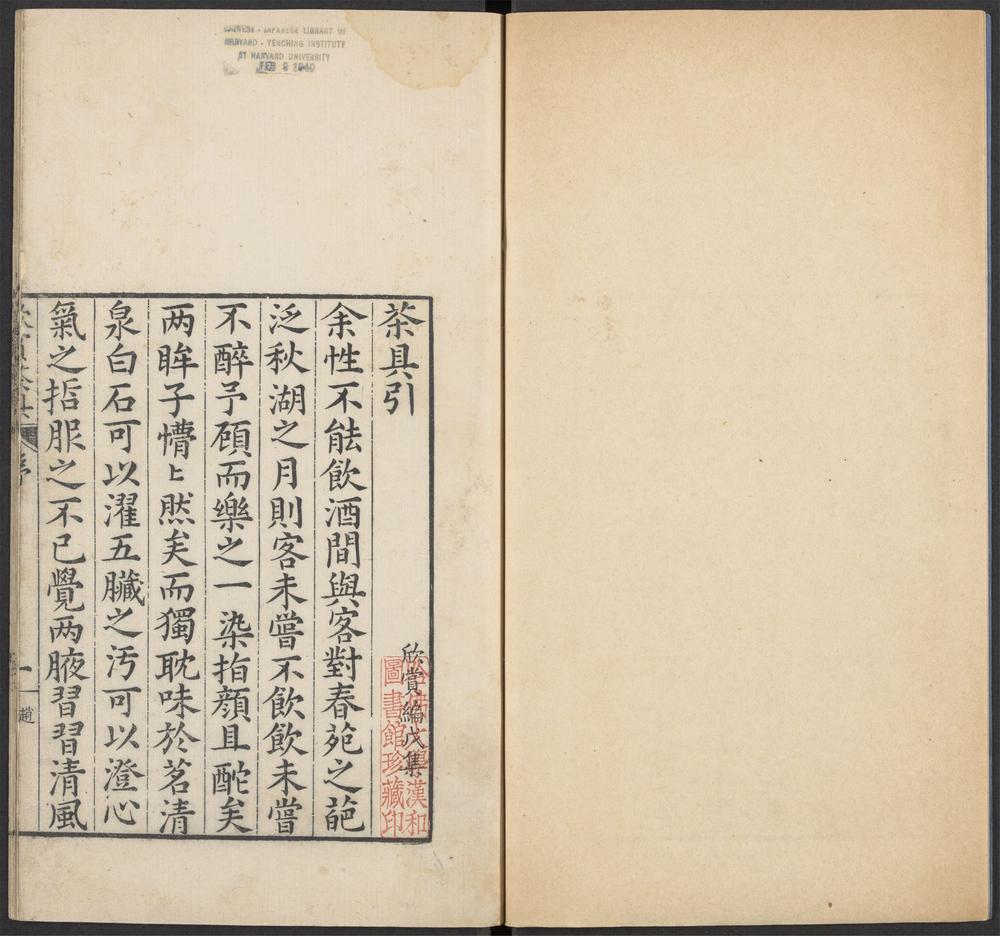 CHINESE - JAPANESE LIBRARY OF
HARVARD - YENCHING INSTITUTE
AT HARVARD UNIVERSITY
FEB 9 1940
茶具引
欣賞編戊集
哈佛大學漢和
圖書館珍藏印
余性不能飲酒間與客對春苑之葩
泛秋湖之月則客未嘗不飲飲未嘗
不醉予顧而樂之一染指顔且酡矣
两眸子懵〻然矣而獨耽味於茗清
泉白石可以濯五臟之汚可以澄心
氣之㧱服之不已覺两腋習習清風
序
一
趙